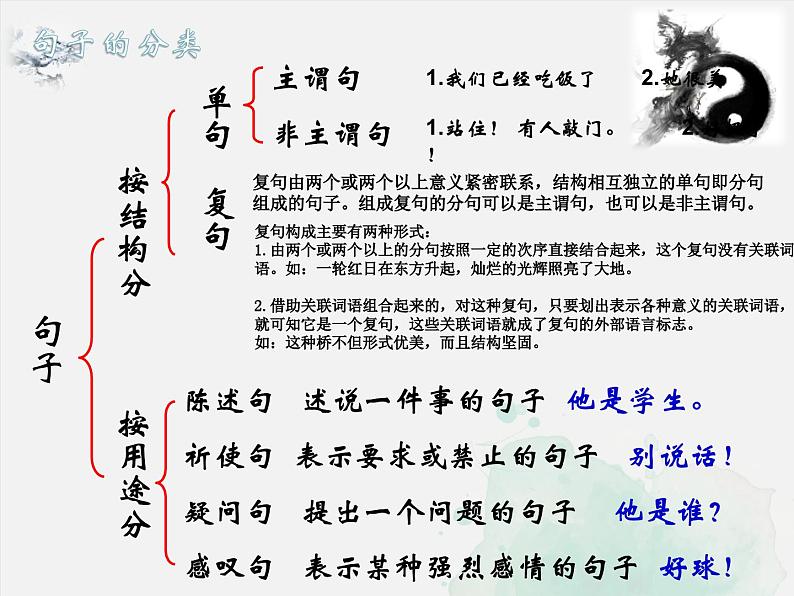 句子的分类
句子
按结构分
单句
主谓句 1.我们已经吃饭了 2.她很美
非主谓句 1.站住！ 有人敲门。 2.
！
复句
复句由两个或两个以上意义紧密联系，结构相互独立的单句即分句
组成的句子。组成复句的分句可以是主谓句，也可以是非主谓句。
复句构成主要有两种形式：
1.由两个或两个以上的分句按照一定的次序直接结合起来，这个复句没有关联词
语。如：一轮红日在东方升起，灿烂的光辉照亮了大地。
2.借助关联词语组合起来的，对这种复句，只要划出表示各种意义的关联词语，
就可知它是一个复句，这些关联词语就成了复句的外部语言标志。
如：这种桥不但形式优美，而且结构坚固。
按用途分
陈述句 述说一件事的句子 他是学生。
祈使句 表示要求或禁止的句子 别说话！
疑问句 提出一个问题的句子 他是谁？
感叹句 表示某种强烈感情的句子 好球！